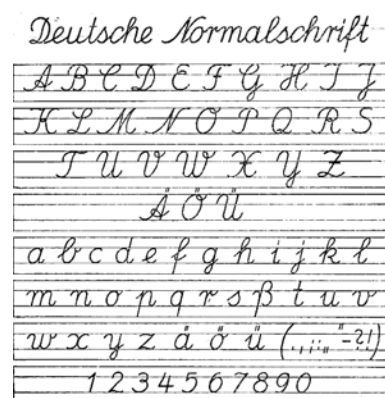 Deutsche Normalschrift
A B C D E F G H I J
K L M N O P Q R S
T U V W X Y Z
Ä Ö Ü
a b c d e f g h i j k l
m n o p q r s ß t u v
w x y z ä ö ü (., ; : „ “ - ? !)
1 2 3 4 5 6 7 8 9 0